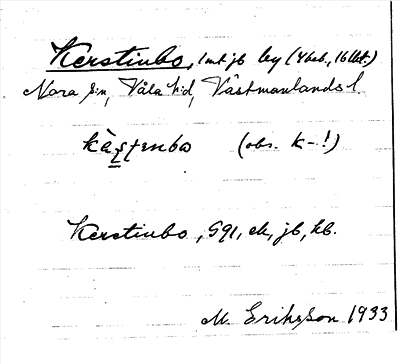 Kerstinbo, 1 mt jb by (4 heb., 16 lbt.)
Nora sn, Våla hd, Västmanlands l.
(obs. k-!)
Kerstinbo, Sql, ek, jb, kb.
M. Eriksson 1933